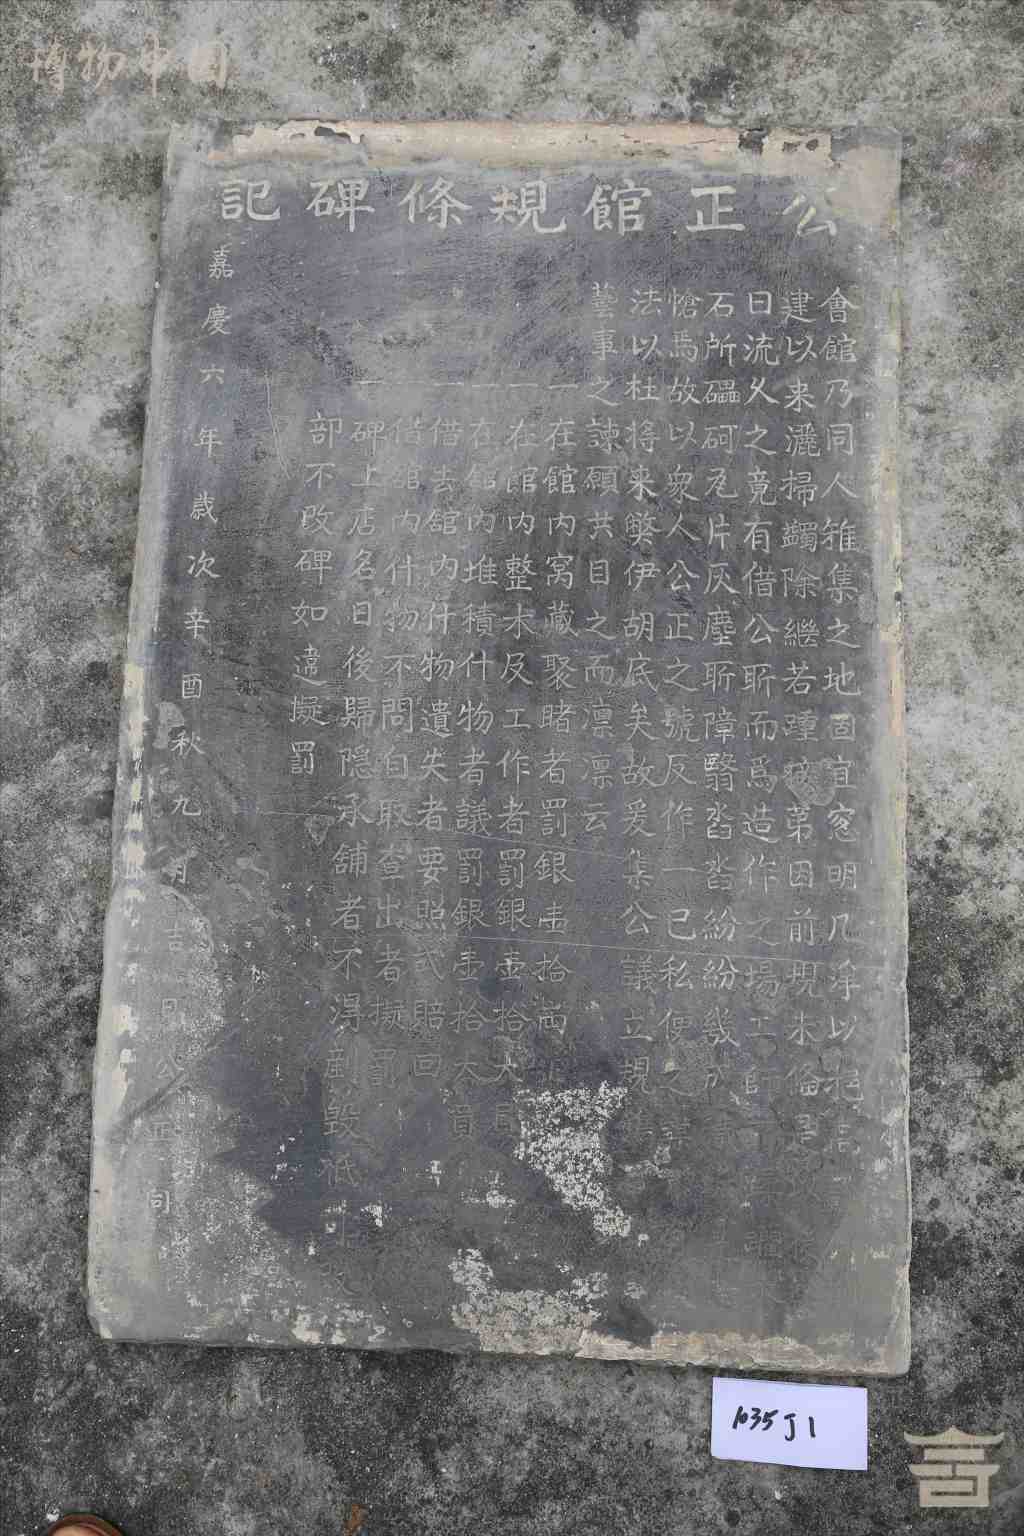 博物中国
公正館規條碑記
會館乃同人雅集之地固宜窓明几淨以
建以来灑掃蠲除繼若踵
第因前規未
日流久之竟有借公所而爲造作之場工師
石所礧砢瓦片灰塵所障翳沓沓紛紛幾
愴焉故以衆人公正之號反作一己私便之
法以杜将来弊伊胡底矣故爰集公議立規
藝事之諫願共目之而凛凛云
一在館内窝藏聚賭者罰銀壹拾
一在館内整木及工作者罰銀壹拾大
一在館内堆積什物者議罰銀壹拾大
一借去舘内什物遺失者要照式賠回
一借舘内什物不問自取查出者擬罰
一碑上店名日後歸隐承舖者不得剷毀祇
部不改碑如違擬罰
嘉慶六年歲次辛酉秋九月吉 公正 同
1035J1